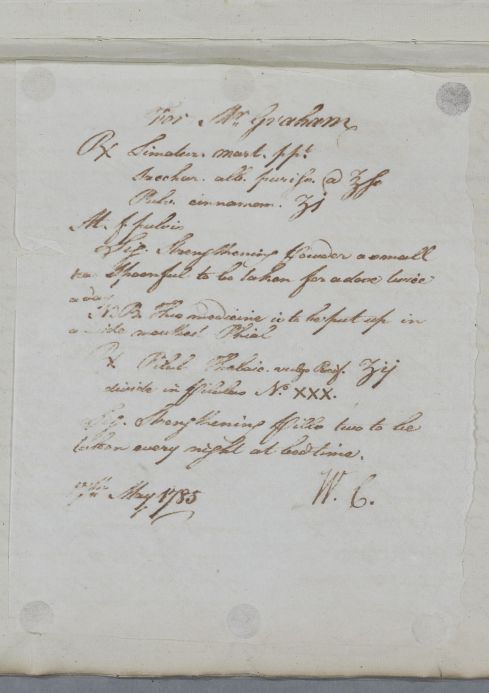 For Mr Graham
℞ Limatur. mart. ppt.
Sacchar. alb. puriss. a ℥ss
Pulv. cinnamom. ʒj
M. f. pulvis
Sig. Strengthening Powder a small
tea Spoonful to be taken for a dose twice
a day
N.B. This medicine is to be put up in
a wide mouthed Phial
℞ Pilul. Rufi. ʒij
divide in Pilulas No. XXX.
Sig. Strengthening Pills two to be
taken every night at bedtime.
May 1785
W. C.